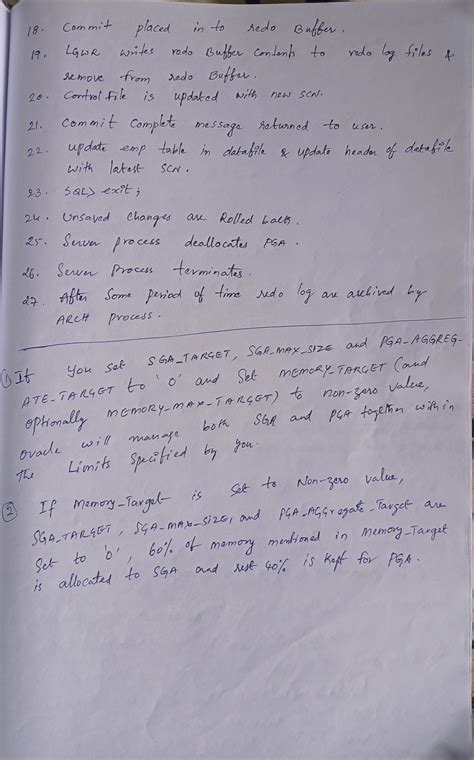 18. Commit placed in to redo Buffer.
19. LGWR writes redo Buffer contents to redo log files &
remove from redo Buffer.
20. Control file is updated with new SCN.
21. Commit Complete message returned to user.
22. update emp table in datafile & update header of datafile
with latest SCN.
23. SQL> exit;
24. Unsaved changes are Rolled back.
25. Server process deallocates PGA.
26. Server Process terminates.
27. After Some period of time redo log are archived by
ARCH process.
① If You set SGA_TARGET, SGA_MAX_SIZE and PGA_AGGREG-
ATE_TARGET to '0' and Set MEMORY_TARGET (and
optionally MEMORY_MAX_TARGET) to non-zero value,
oracle will manage both SGA and PGA together within
The Limits Specified by you.
② If Memory_Target is Set to Non-zero value,
SGA_TARGET, SGA_MAX_SIZE, and PGA_AGGregate_Target are
Set to '0', 60% of memory mentioned in Memory_Target
is allocated to SGA and rest 40% is kept for PGA.